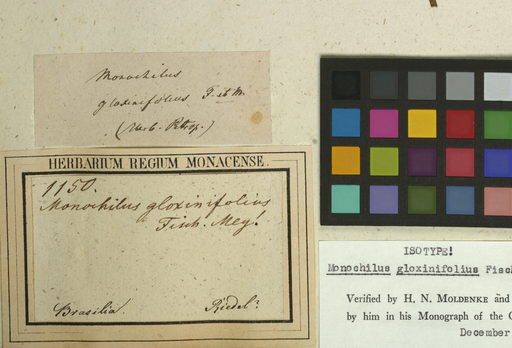 Monochilus
gloxinifolius F. et M.
(Herb. Petrop.)
HERBARIUM REGIUM MONACENSE.
1150.
Monochilus gloxinifolius
Fisch. Mey!
Brasilia.
Riedel?
ISOTYPE!
Monochilus gloxinifolius Fisch
Verified by H. N. MOLDENKE and
by him in his Monograph of the
December